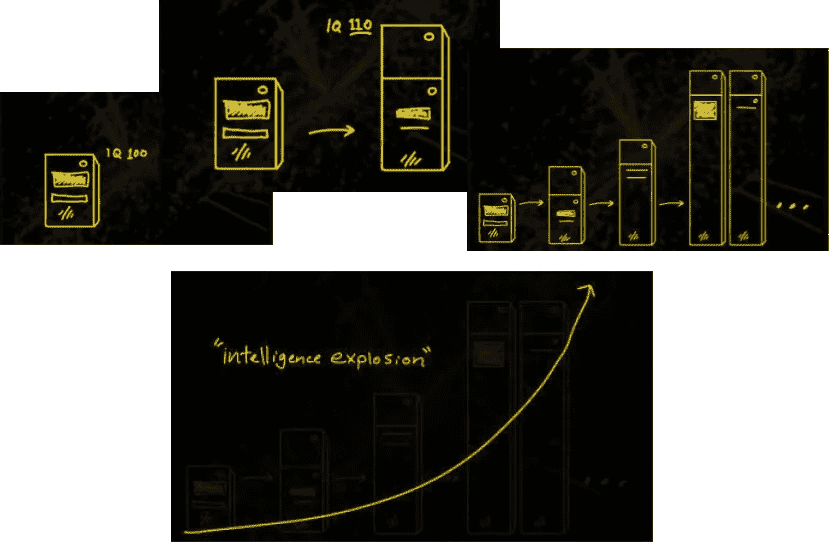 IQ 100
IQ 110
"intelligence explosion"